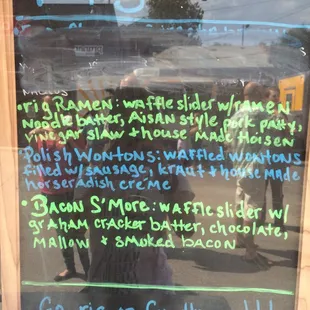 orig RAMEN: waffle slider w/ramen
Noodle batter, AiSAN style pork patty,
vinegar slaw + house MADE Hoisen
Polish Wontons: waffled wontons
filled w/ sausage, kraut + house made
horseradish creme
• BACON S'More: waffle slider w/
graham cracker batter, chocolate,
mallow + smoked bacon